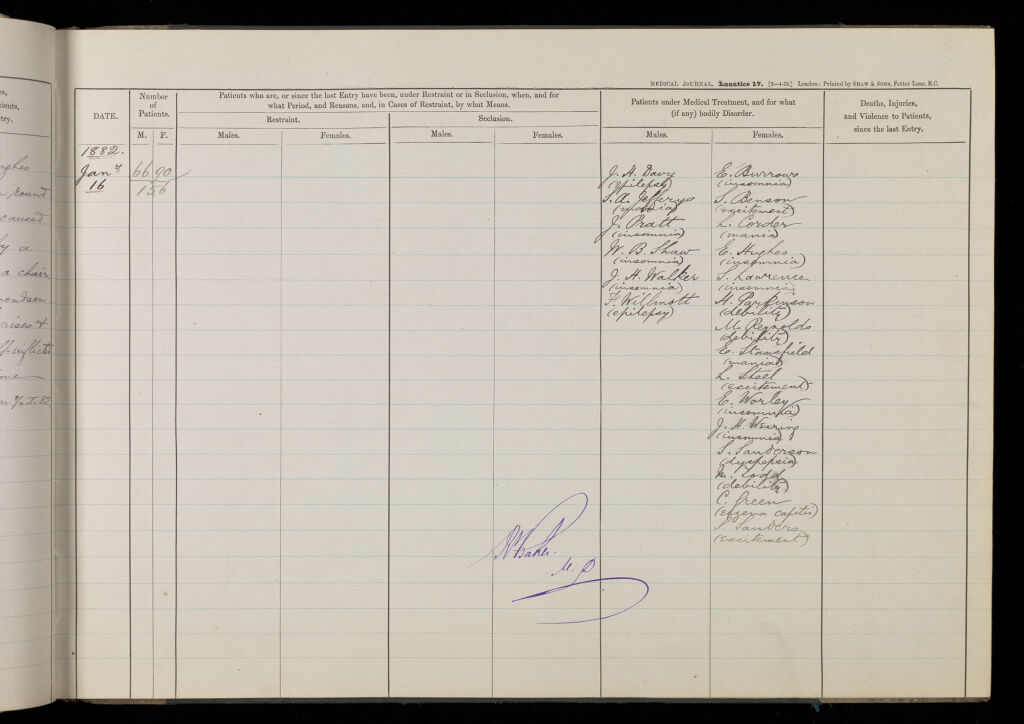 es,
ients,
try.
ughes
round
caused
by a
a chair
mondson
uises &
lf-inflicted
one
n 7.I.82
MEDICAL JOURNAL. Lunatics 17. [2—4-79.] London: Printed by SHAW & SONS, Fetter Lane, E.C.
DATE.
Number
of
Patients.
M. F.
Patients who are, or since the last Entry have been, under Restraint or in Seclusion, when, and for
what Period, and Reasons, and, in Cases of Restraint, by what Means.
Restraint. Seclusion.
Males. Females. Males. Females.
Patients under Medical Treatment, and for what
(if any) bodily Disorder.
Males. Females.
Deaths, Injuries,
and Violence to Patients,
since the last Entry.
1882.
Jany 66 90
16 156
J. H. Davy
(epilepsy)
S. A. Jefferys
(mania)
J. Pratt
(insomnia)
W. B. Shaw
(insomnia)
J. H. Walker
(insomnia)
F. Willmott
(epilepsy)
E. Burrows
(insomnia)
S. Benson
(excitement)
L. Corder
(mania)
E. Hughes
(insomnia)
S. Lawrence
(insomnia)
H. Parkinson
(debility)
M. Reynolds
(debility)
E. Stansfield
(mania)
L. Steel
(excitement)
E. Worley
(insomnia)
J. H. Wearing
(insomnia)
S. Sanderson
(dyspepsia)
M. Todd
(debility)
C. Green
(eczema capitis)
S. Sanders
(excitement)
R Baker.
M.D